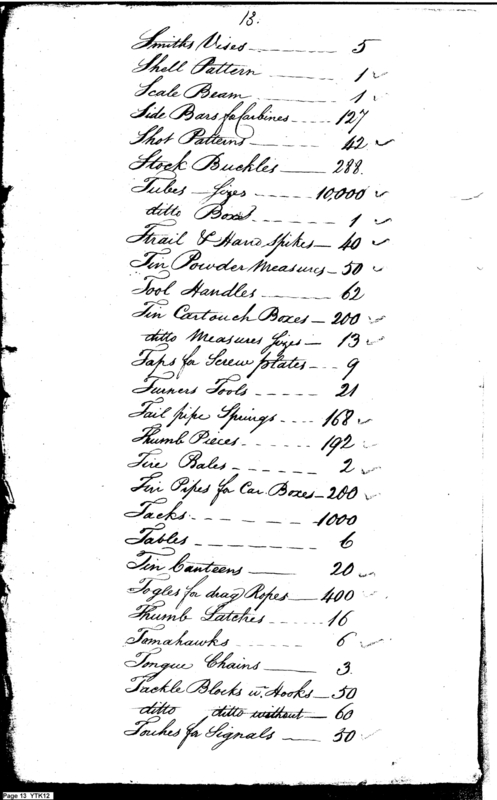 13.
Smiths Vises 5
Shell Pattern 1
Scale Beam 1
Side Bars for Carbines 127
Shot Patterns 42
Stock Buckles 288
Tubes Sizes 10,000
ditto Boxes 1
Trail & Hand Spikes 40
Tin Powder Measures 50
Tool Handles 62
Tin Cartouch Boxes 200
ditto Measures Sizes 13
Taps for Screw plates 9
Turners Tools 21
Tail pipe Springs 168
Thumb Pieces 192
Tire Bales 2
Tin Pipes for Car. Boxes 200
Tacks 1000
Tables 6
Tin Canteens 20
Togles for drag Ropes 400
Thumb Latches 16
Tomahawks 6
Tongue Chains 3
Tackle Blocks w. Hooks 50
ditto ditto without 60
Touches for Signals 50
Page 13 YTK12